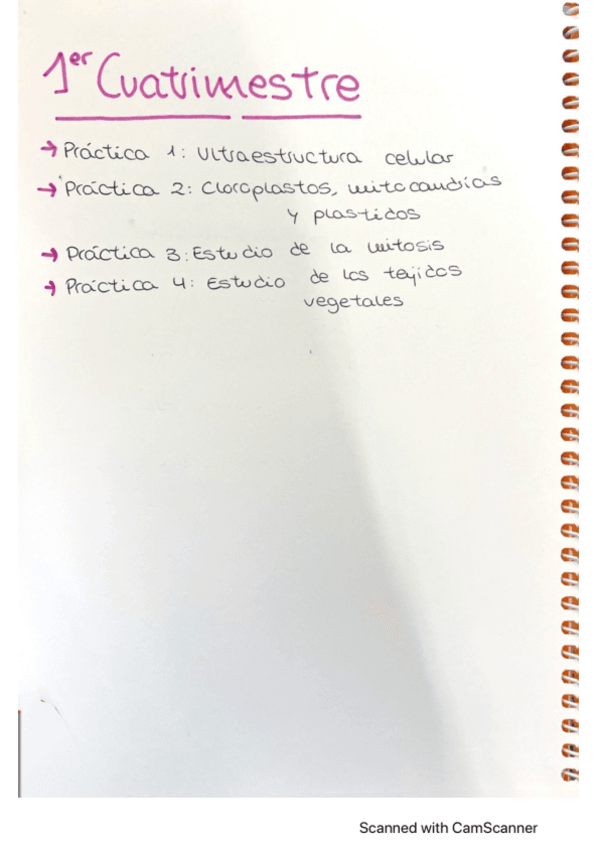 1er Cuatrimestre
→ Práctica 1: Ultraestructura celular
→ Práctica 2: Cloroplastos, mitocondrias
y plastidos
→ Práctica 3: Estudio de la mitosis
→ Práctica 4: Estudio de los tejidos
vegetales
Scanned with CamScanner